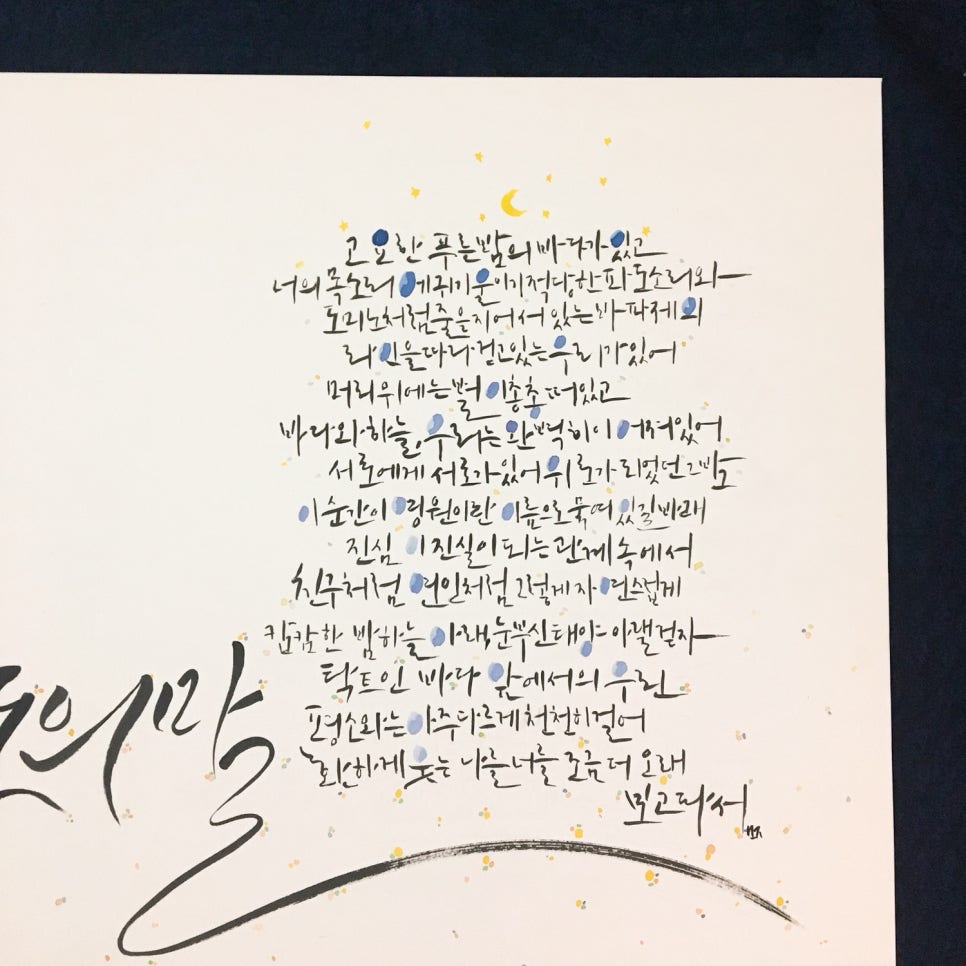 고요한 푸른밤의 바다가 있고
너의 목소리에 귀기울이기 적당한 파도소리와
도미노처럼 줄을 지어 서 있는 방파제의
라인을 따라 걷고 있는 우리가 있어
머리 위에는 별이 총총 떠있고
바다와 하늘, 우리는 완벽히 이어져 있어
서로에게 서로가 있어 위로가 되었던 그 밤도
이 순간이 영원이란 이름으로 묶여 있길 바래
진심이 진실이 되는 관계 속에서
친구처럼 연인처럼 그렇게 자연스럽게
캄캄한 밤하늘 아래, 눈부신 태양 아랠 걷자
탁 트인 바다 앞에서의 우린
평소와는 아주 다르게 천천히 걸어
환하게 웃는 나를 너를 조금 더 오래
보고파서
의 말